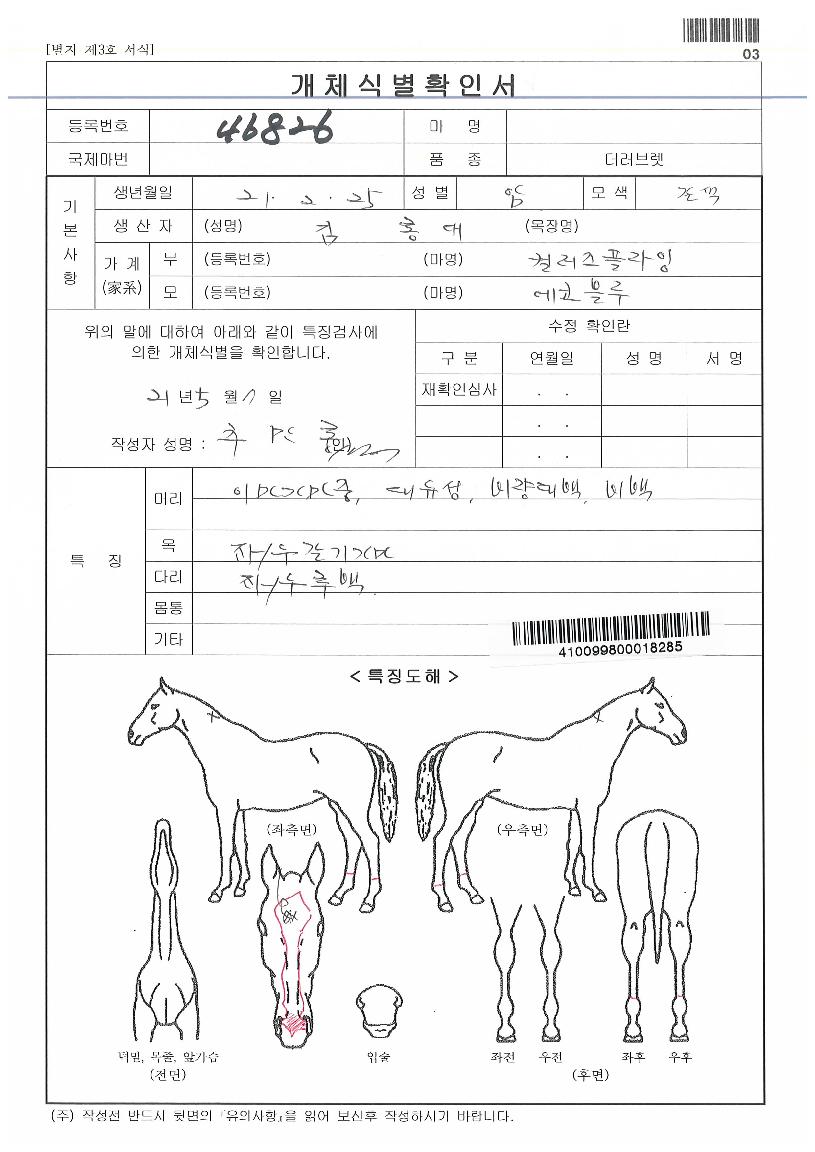 03
[별지 제3호 서식]
개체식별확인서
등록번호 46826 마 명
국제마번 품 종 더러브렛
기본사항
생년월일 21. 2. 25 성별 암 모색
생 산 자 (성명) 김 홍 대 (목장명)
가 계 (家系)
부 (등록번호) (마명) 컬러즈플라잉
모 (등록번호) (마명) 에코블루
위의 말에 대하여 아래와 같이 특징검사에
의한 개체식별을 확인합니다.
수정 확인란
구 분 연월일 성 명 서 명
재확인심사 . .
. .
. .
21년 5월 일
작성자 성명 :
특 징
머리 대유성, 비량대백, 비백
목 좌/우
다리 좌/우후백
몸통
기타
410099800018285
< 특징도해 >
(좌측면) (우측면)
턱밑, 목줄, 앞가슴 입술 좌전 우전 좌후 우후
(전면) (후면)
(주) 작성전 반드시 뒷면의 『유의사항』을 읽어 보신후 작성하시기 바랍니다.